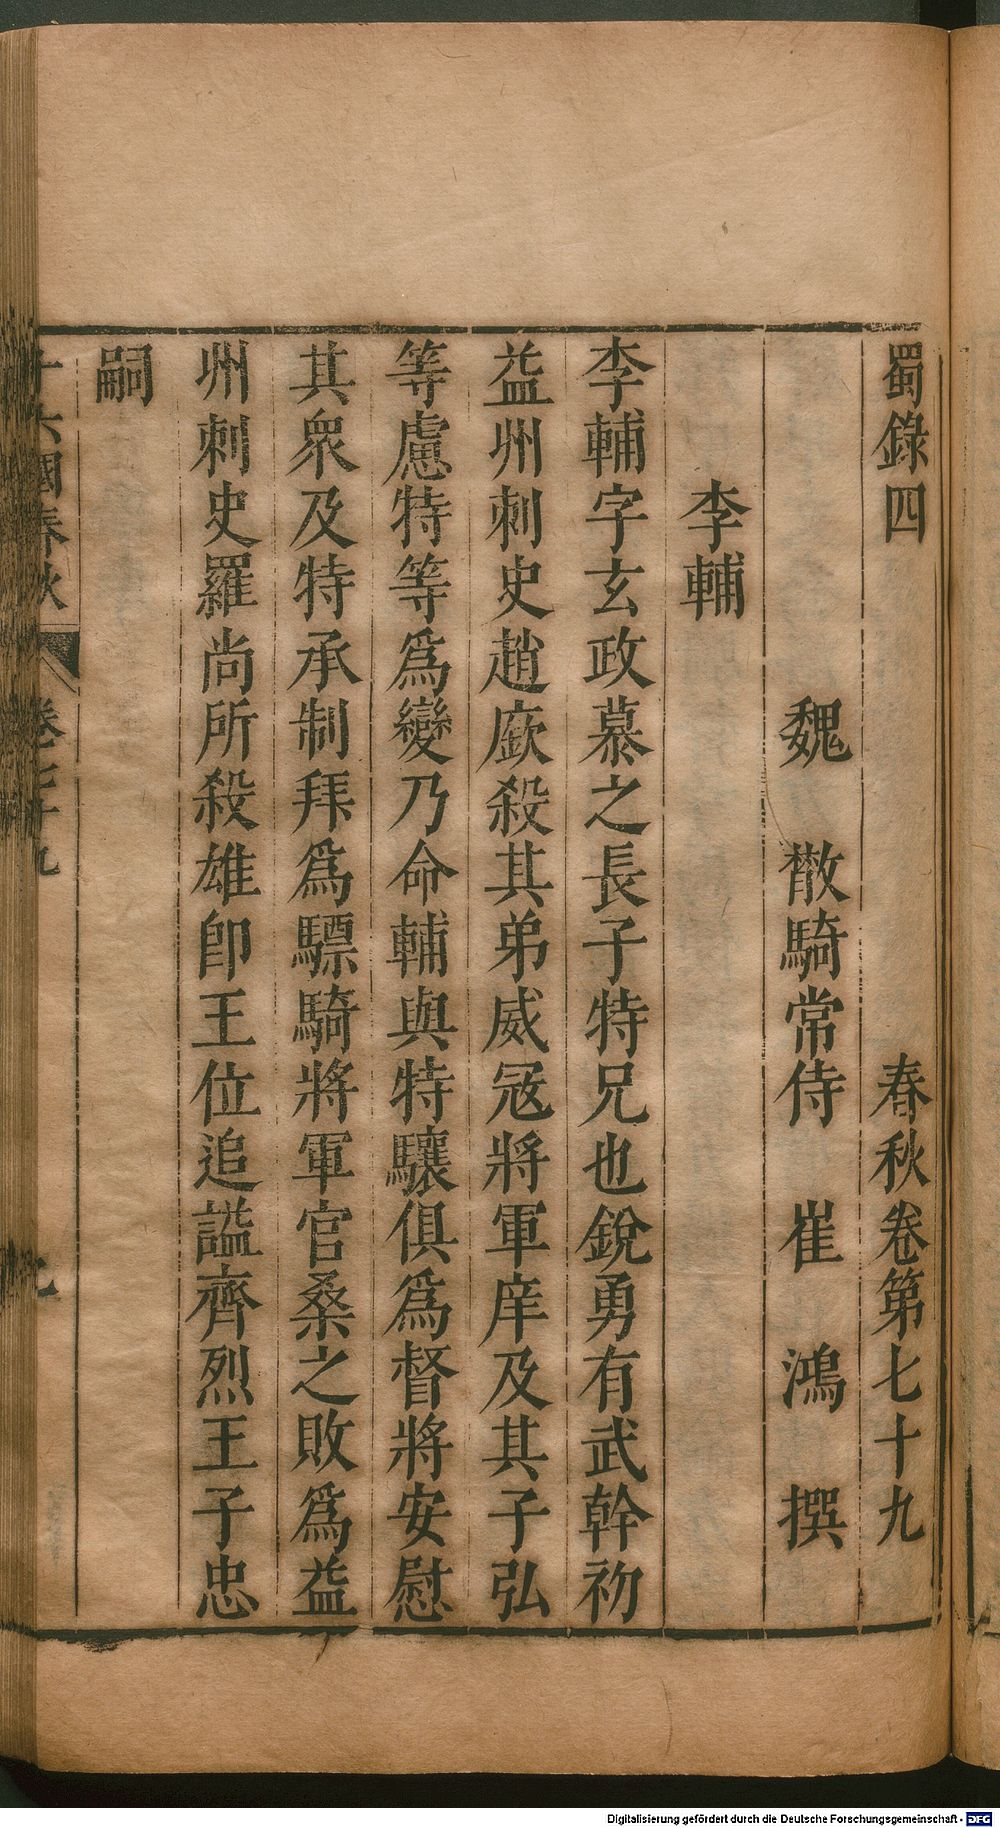 蜀錄四 春秋卷第七十九
魏 散騎常侍 崔 鴻 撰
李輔
李輔字玄政慕之長子特兄也銳勇有武幹初
益州刺史趙廞殺其弟威寇將軍庠及其子弘
等慮特等爲變乃命輔與特驤俱爲督將安慰
其衆及特承制拜爲驃騎將軍官桑之敗爲益
州刺史羅尚所殺雄即王位追謚齊烈王子忠
嗣
十六國春秋 卷七十九
Digitalisierung gefördert durch die Deutsche Forschungsgemeinschaft - DFG